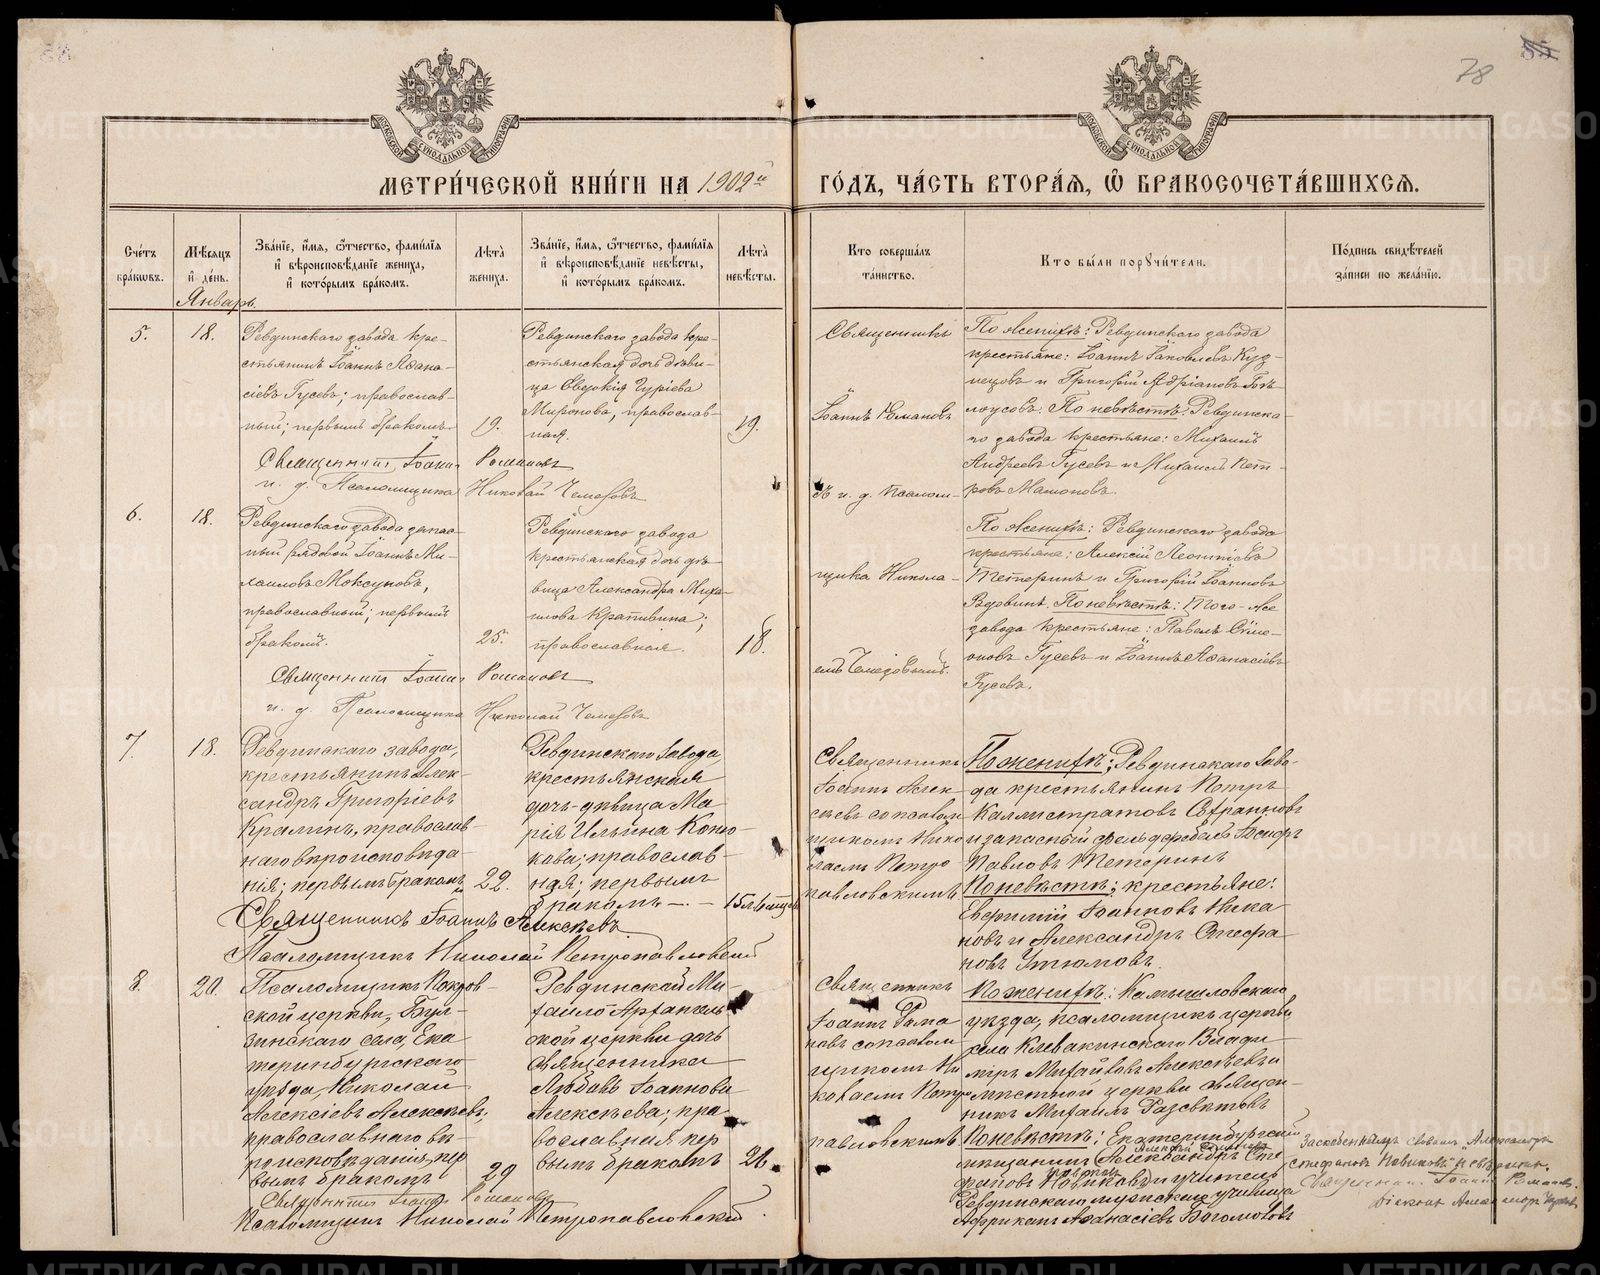 78
85
МЕТРИ́ЧЕСКОЙ КНИ́ГИ НА 1902й ГО́ДЪ, ЧА́СТЬ ВТОРА́Я, Ѽ БРАКОСОЧЕТА́ВШИХСЯ.
Сче́тъ бра́ковъ.
Мѣ́сяцъ и де́нь.
Зва́нїе, и́мя, ѻ́тчество, фами́лїя и вѣроисповѣ́данїе жениха̀, и кото́рымъ бра́комъ.
Лѣта̀ жениха̀.
Зва́нїе, и́мя, ѻ́тчество, фами́лїя и вѣроисповѣ́данїе невѣ́сты, и кото́рымъ бра́комъ.
Лѣта̀ невѣ́сты.
Кто соверша́лъ та́инство.
Кто бы́ли поручи́тели.
По́дпись свидѣ́телей за́писи по жела́нїю.
Январь.
5.
18.
Ревдинскаго завода кре-
стьянинъ Іоаннъ Аѳана-
сіевъ Гусевъ; православ-
ный; первымъ бракомъ.
19.
Ревдинскаго завода кре-
стьянская дочь дѣви-
ца Евдокія Гуріева
Миронова, православ-
ная.
19.
Священникъ
Іоаннъ Романовъ
и. д. Псалом-
По женихѣ: Ревдинскаго завода
крестьяне: Іоаннъ Іаковлевъ Куз-
нецовъ и Григорій Адріановъ Бѣ-
лоусовъ. По невѣстѣ: Ревдинска-
го завода крестьяне: Михаилъ
Андреевъ Гусевъ и Михаилъ Пет-
ровъ Мамоновъ.
Священникъ Іоаннъ Романовъ
и. д. Псаломщика Николай Чемезовъ
6.
18.
Ревдинскаго завода запас-
ный рядовой Іоаннъ Ми-
хаиловъ Моксуновъ,
православный; первымъ
бракомъ.
25.
Ревдинскаго завода
крестьянская дочь дѣ-
вица Александра Миха-
илова Крапивина;
православная.
18.
щика Никола-
емъ Чемезовымъ.
По женихѣ: Ревдинскаго завода
крестьяне: Алексій Леонтіевъ
Тетеринъ и Григорій Іоанновъ
Вдовинъ. По невѣстѣ: Того-же
завода крестьяне: Павелъ Симе-
оновъ Гусевъ и Іоаннъ Аѳанасіевъ
Гусевъ.
Священникъ Іоаннъ Романовъ
и. д. Псаломщика Николай Чемезовъ
7.
18.
Ревдинскаго завода,
крестьянинъ Алек-
сандръ Григоріевъ
Кралинъ, православ-
наго вѣроисповѣда-
нія; первымъ бракомъ
22.
Ревдинскаго завода
крестьянская
дочь-дѣвица Ма
рія Ильина Коно-
кова; православ-
ная; первымъ
бракомъ
Священникъ
Іоаннъ Алек
сѣевъ съ псалом
щикомъ Нико
лаемъ Петро
павловскимъ
По женихѣ: Ревдинскаго заво-
да крестьянинъ Петръ
Каллистратовъ Софроновъ
и запасный фельдфебель Іосифъ
Павловъ Тетеринъ
По невѣстѣ: крестьяне:
Евфимій Іоанновъ Ника
новъ и Александръ Стефа
новъ Утюмовъ.
Священникъ Іоаннъ Алексѣевъ
Псаломщикъ Николай Петропавловскій
8.
20.
Псаломщикъ Покров-
ской церкви, Бул-
зинскаго села, Ека
теринбургскаго
уѣзда, Николай
Алексіевъ Алексѣевъ;
православнаго вѣ-
роисповѣданія, пер
вымъ бракомъ
29
Ревдинской Ми-
хаило Архангель
ской церкви дочь
священника
Любовь Іоаннова
Алексѣева; пра
вославная пер
вымъ бракомъ
26.
Священникъ
Іоаннъ Рома
новъ съ псалом
щикомъ Ни
колаемъ Петро
павловскимъ
По женихѣ: Камышловскаго
уѣзда, псаломщикъ церкви
села Клевакинскаго Влади
міръ Михайловъ Алексѣевъ и
мѣстной церкви священ-
никъ Михаилъ Разсвѣтовъ
По невѣстѣ: Екатеринбургскій
мѣщанинъ Александръ Сте
фановъ Новиковъ и учитель
Ревдинскаго мужскаго училища
Африканъ Аѳанасіевъ Богомоловъ
Священникъ Іоаннъ Романовъ
Псаломщикъ Николай Петропавловскій
Стефановъ Новиковъ
Священникъ Іоаннъ Романовъ.
Діаконъ